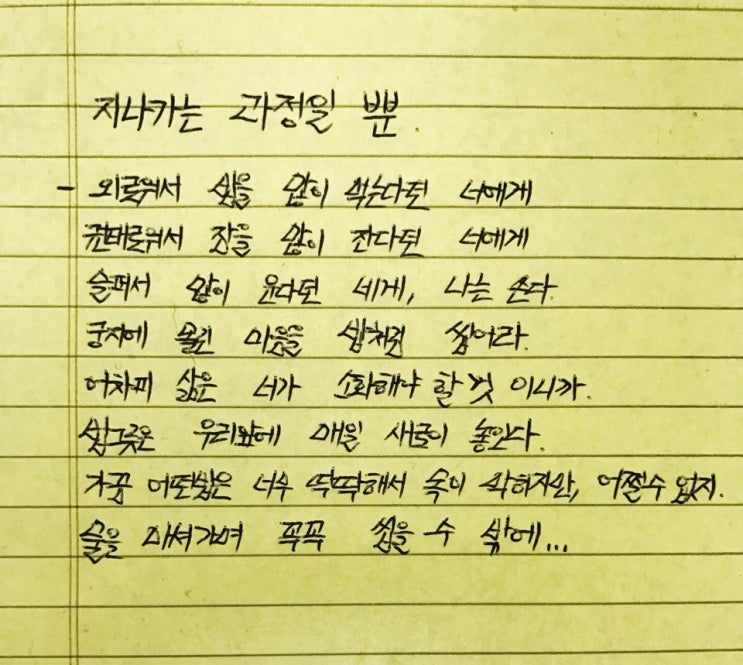 지나가는 과정일 뿐.
- 외로워서 삶을 많이 먹는다던 너에게
권태로워서 잠을 많이 잔다던 너에게
슬퍼서 많이 운다던 네게, 나는 쓴다.
궁지에 몰린 마음을 밥처럼 씹어라.
어차피 삶은 너가 소화해야 할 것 이니까.
밥그릇은 우리앞에 매일 새로이 놓인다.
가끔 어떤삶은 너무 딱딱해서 속이 막히지만, 어쩔수 없지.
술을 마셔가며 꼭꼭 씹을 수 밖에...